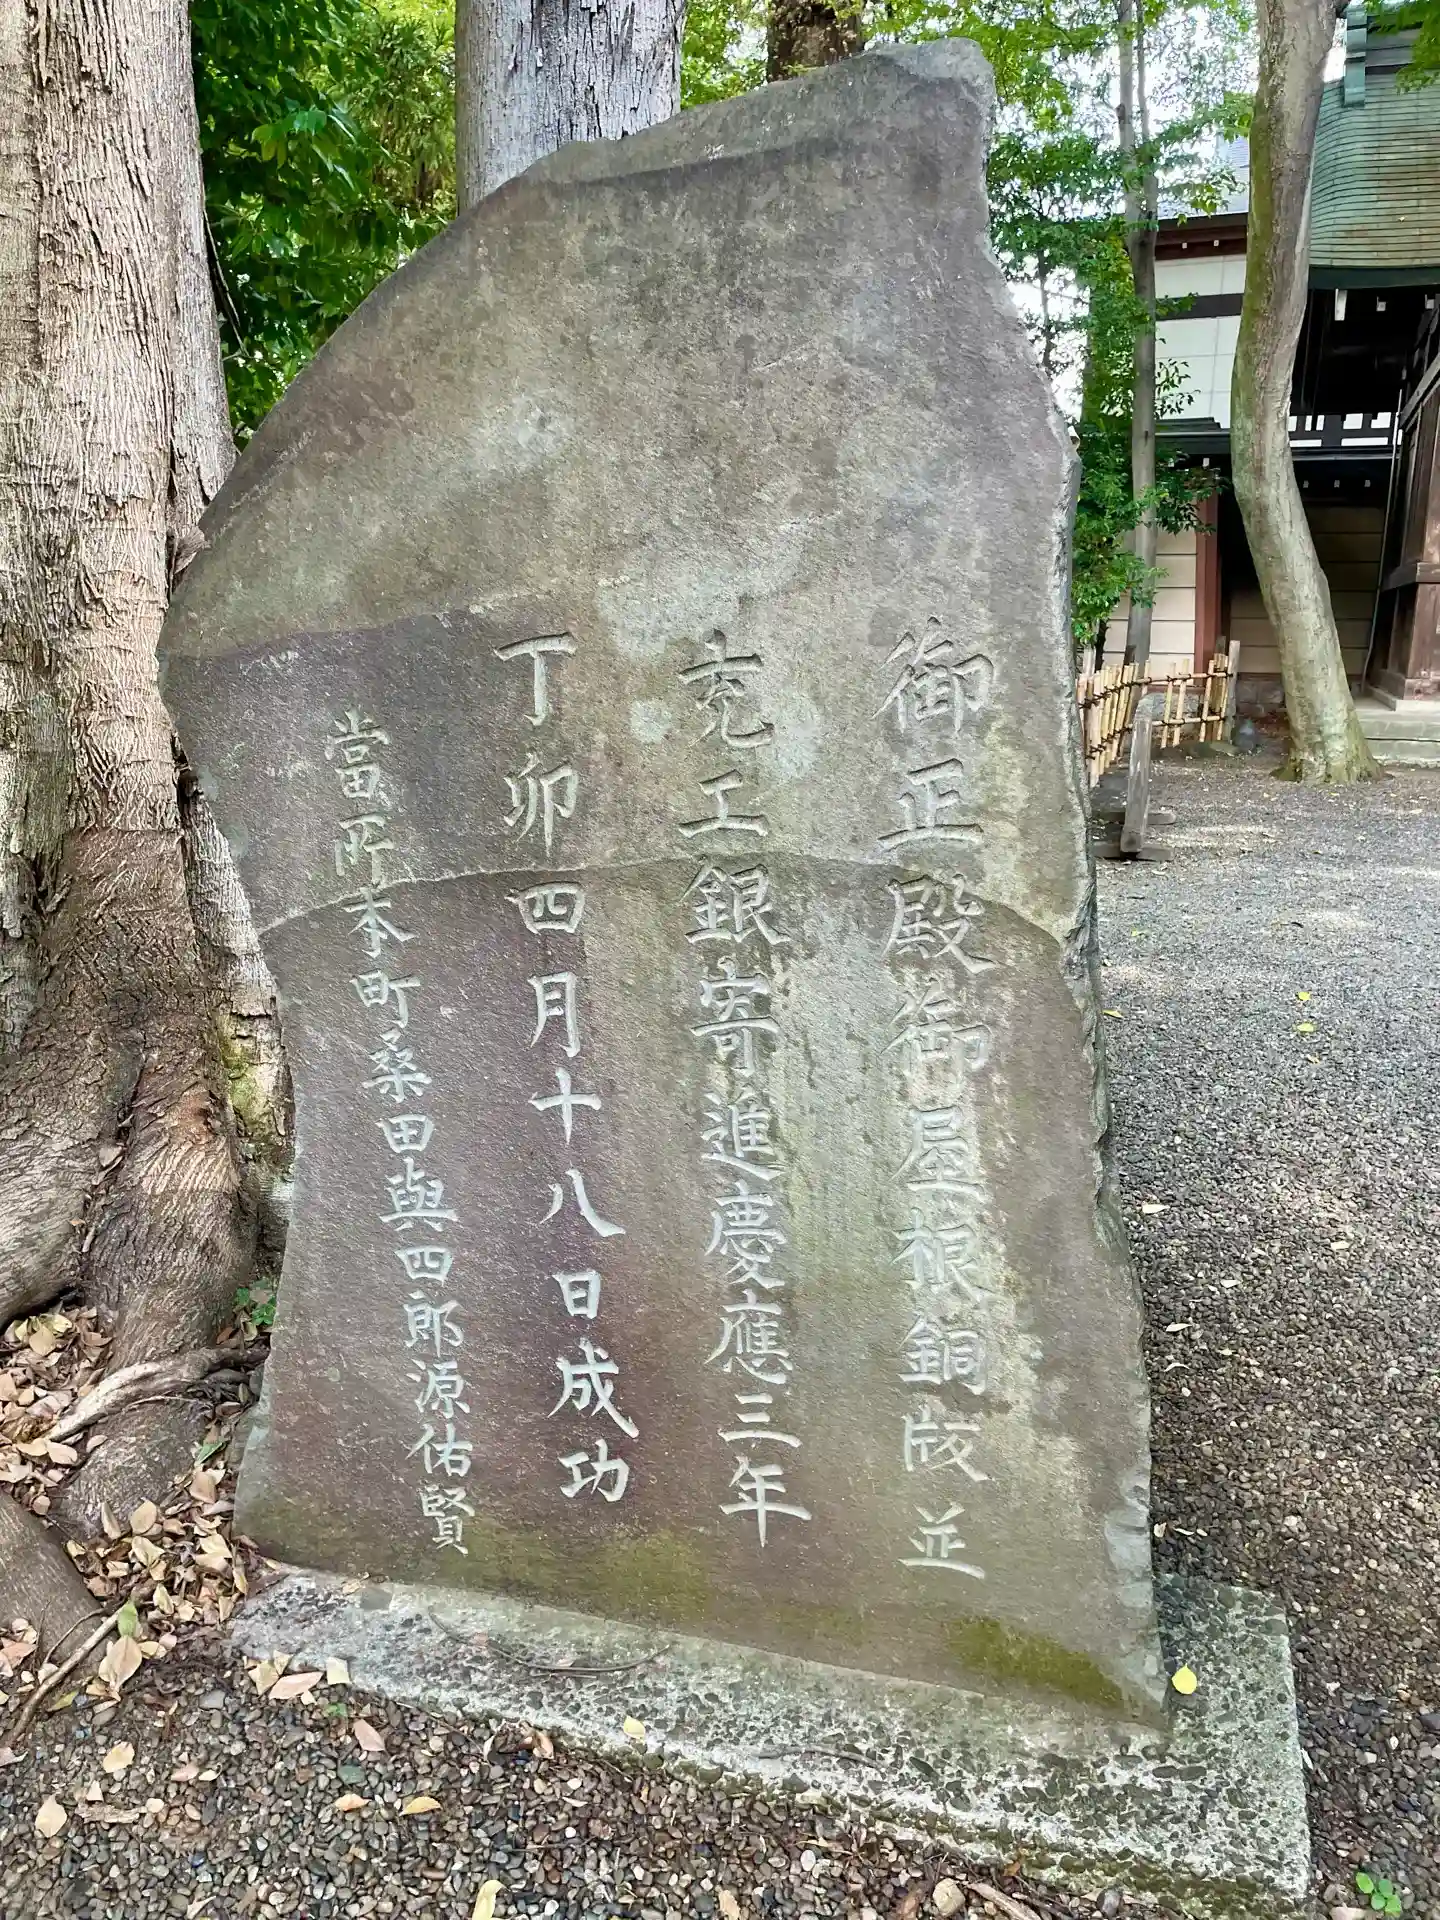 御正殿御屋根銅版並
充工銀寄進慶應三年
丁卯四月十八日成功
當所本町桑田與四郎源佑賢